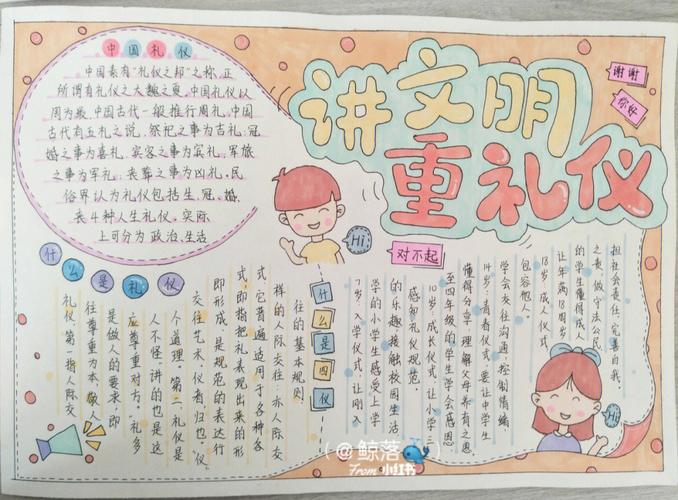 讲文明
重礼仪
谢谢
你好
中国礼仪
中国素有"礼仪之邦"之称,正
所谓有礼仪之大趣之夏,中国礼仪以
周为最,中国古代一般推行周礼,中国
古代有五礼之说,祭祀之事为吉礼,冠
婚之事为喜礼,宾客之事为宾礼,军旅
之事为军礼,丧葬之事为凶礼,民
俗界认为礼仪包括生、冠、婚、
丧4种人生礼仪,实际
上可分为政治、生活
Hi
对不起
什么是礼仪
礼仪,第一指人际交
往尊重为本,做人
是做人的要求,即
应尊重对方,"礼多
人不怪"讲的也是这
个道理。第二,礼仪是
交往艺术,仪者归也,"仪"
即形成,是规范的表达行
式,即指把礼表现出来的形
式,它普遍适用于各种各
样的人际交往,亦人际交
往的基本规则
什么是四仪
7岁入学仪式,让刚入
学的小学生感受上学
的乐趣,接触校园生活
感知礼仪规范,
10岁成长仪式,让小学三
至四年级的学生学会感恩
懂得分享,理解父母养育之恩,
14岁青春仪式,要让中学生
学会交往沟通,控制情绪
包容他人。
18岁成人仪式
让年满18周岁
的学生懂得成人
之责,做守法公民
担社会责任,完善自我。
Hi
(@鲸落)
From 小红书